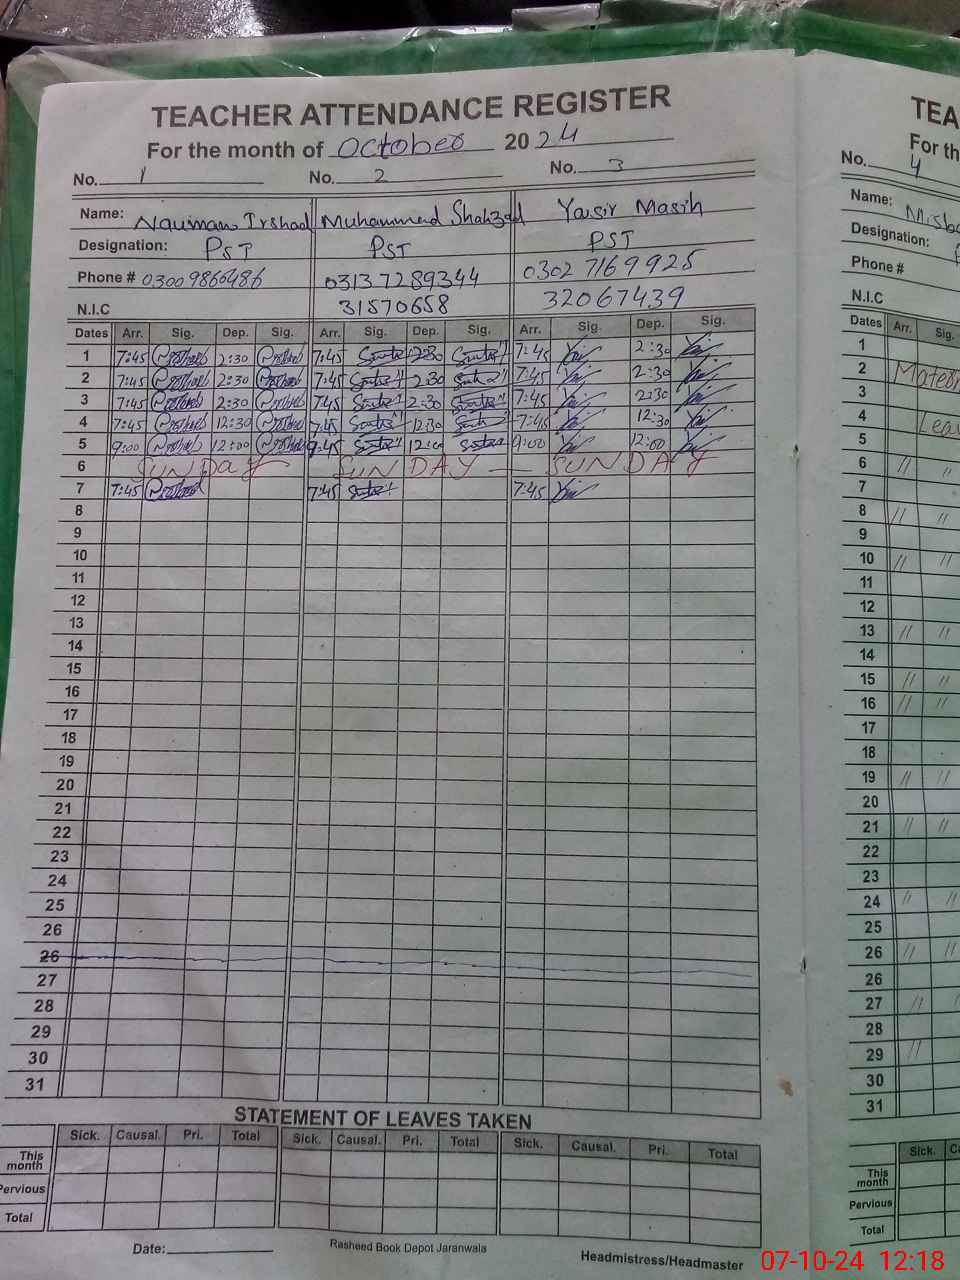 TEACHER ATTENDANCE REGISTER
For the month of October 2024
No. 1 No. 2 No. 3
Name: Nauman Irshad Muhammad Shahzad Yasir Masih
Designation: PST PST PST
Phone # 03009866486 03137289344 03027169925
N.I.C 31570658 32067439
Dates Arr. Sig. Dep. Sig. Arr. Sig. Dep. Sig. Arr. Sig. Dep. Sig.
1 7:45 2:30 7:45 2:30 7:45 2:30
2 7:45 2:30 7:45 2:30 7:45 2:30
3 7:45 2:30 7:45 2:30 7:45 2:30
4 7:45 12:30 7:45 12:30 7:45 12:30
5 9:00 12:00 12:00 9:00 12:00
6 SUNDAY SUNDAY SUNDAY
7 7:45 7:45 7:45
8
9
10
11
12
13
14
15
16
17
18
19
20
21
22
23
24
25
26
26
27
28
29
30
31
STATEMENT OF LEAVES TAKEN
Sick. Causal. Pri. Total Sick. Causal. Pri. Total Sick. Causal. Pri. Total
This month
Pervious
Total
Date:
Rasheed Book Depot Jaranwala
Headmistress/Headmaster
TEA
For th
No. 4
Name: Misba
Designation:
Phone #
N.I.C
Dates Arr. Sig.
1
2 Matern
3
4 Leav
5
6 " "
7
8 " "
9
10 " "
11
12
13 " "
14
15 " "
16 " "
17
18
19 " "
20
21 " "
22
23
24 " "
25
26 " "
26
27 " "
28
29 "
30
31
Sick.
This month
Pervious
Total
07-10-24 12:18